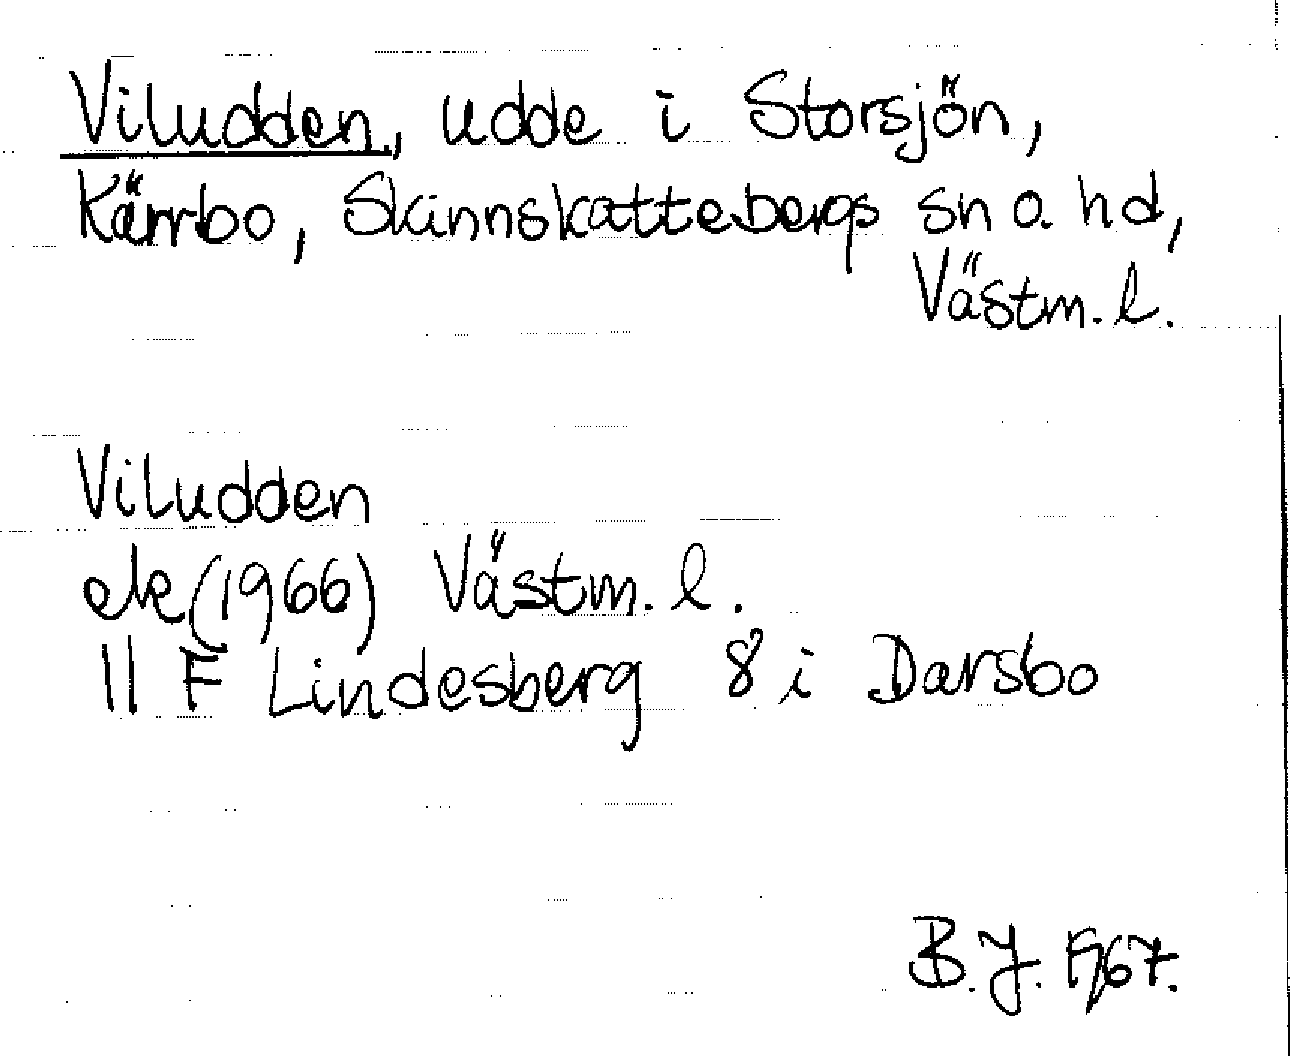 Viludden, udde i Storsjön,
Kärrbo, Skinnskattebergs sn o. hd,
Västm. l.
Viludden
ek (1966) Västm. l.
11 F Lindesberg 8 i Darsbo
B.J. 1967.